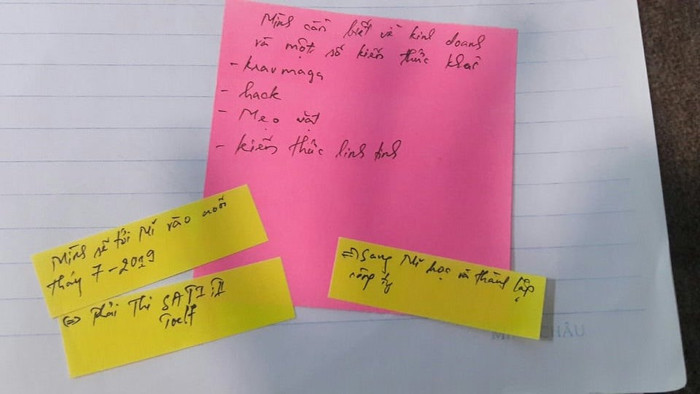 Mình cần biết về kinh doanh
và một số kiến thức khác
- kravmaga
- hack
- Mẹo vặt
- kiến thức linh tinh
Mình sẽ tới Mĩ vào
tháng 7-2019
⇔ phải Thi SAT I; II
Toelf
⇒ Sang Mĩ học và thành lập
công ty